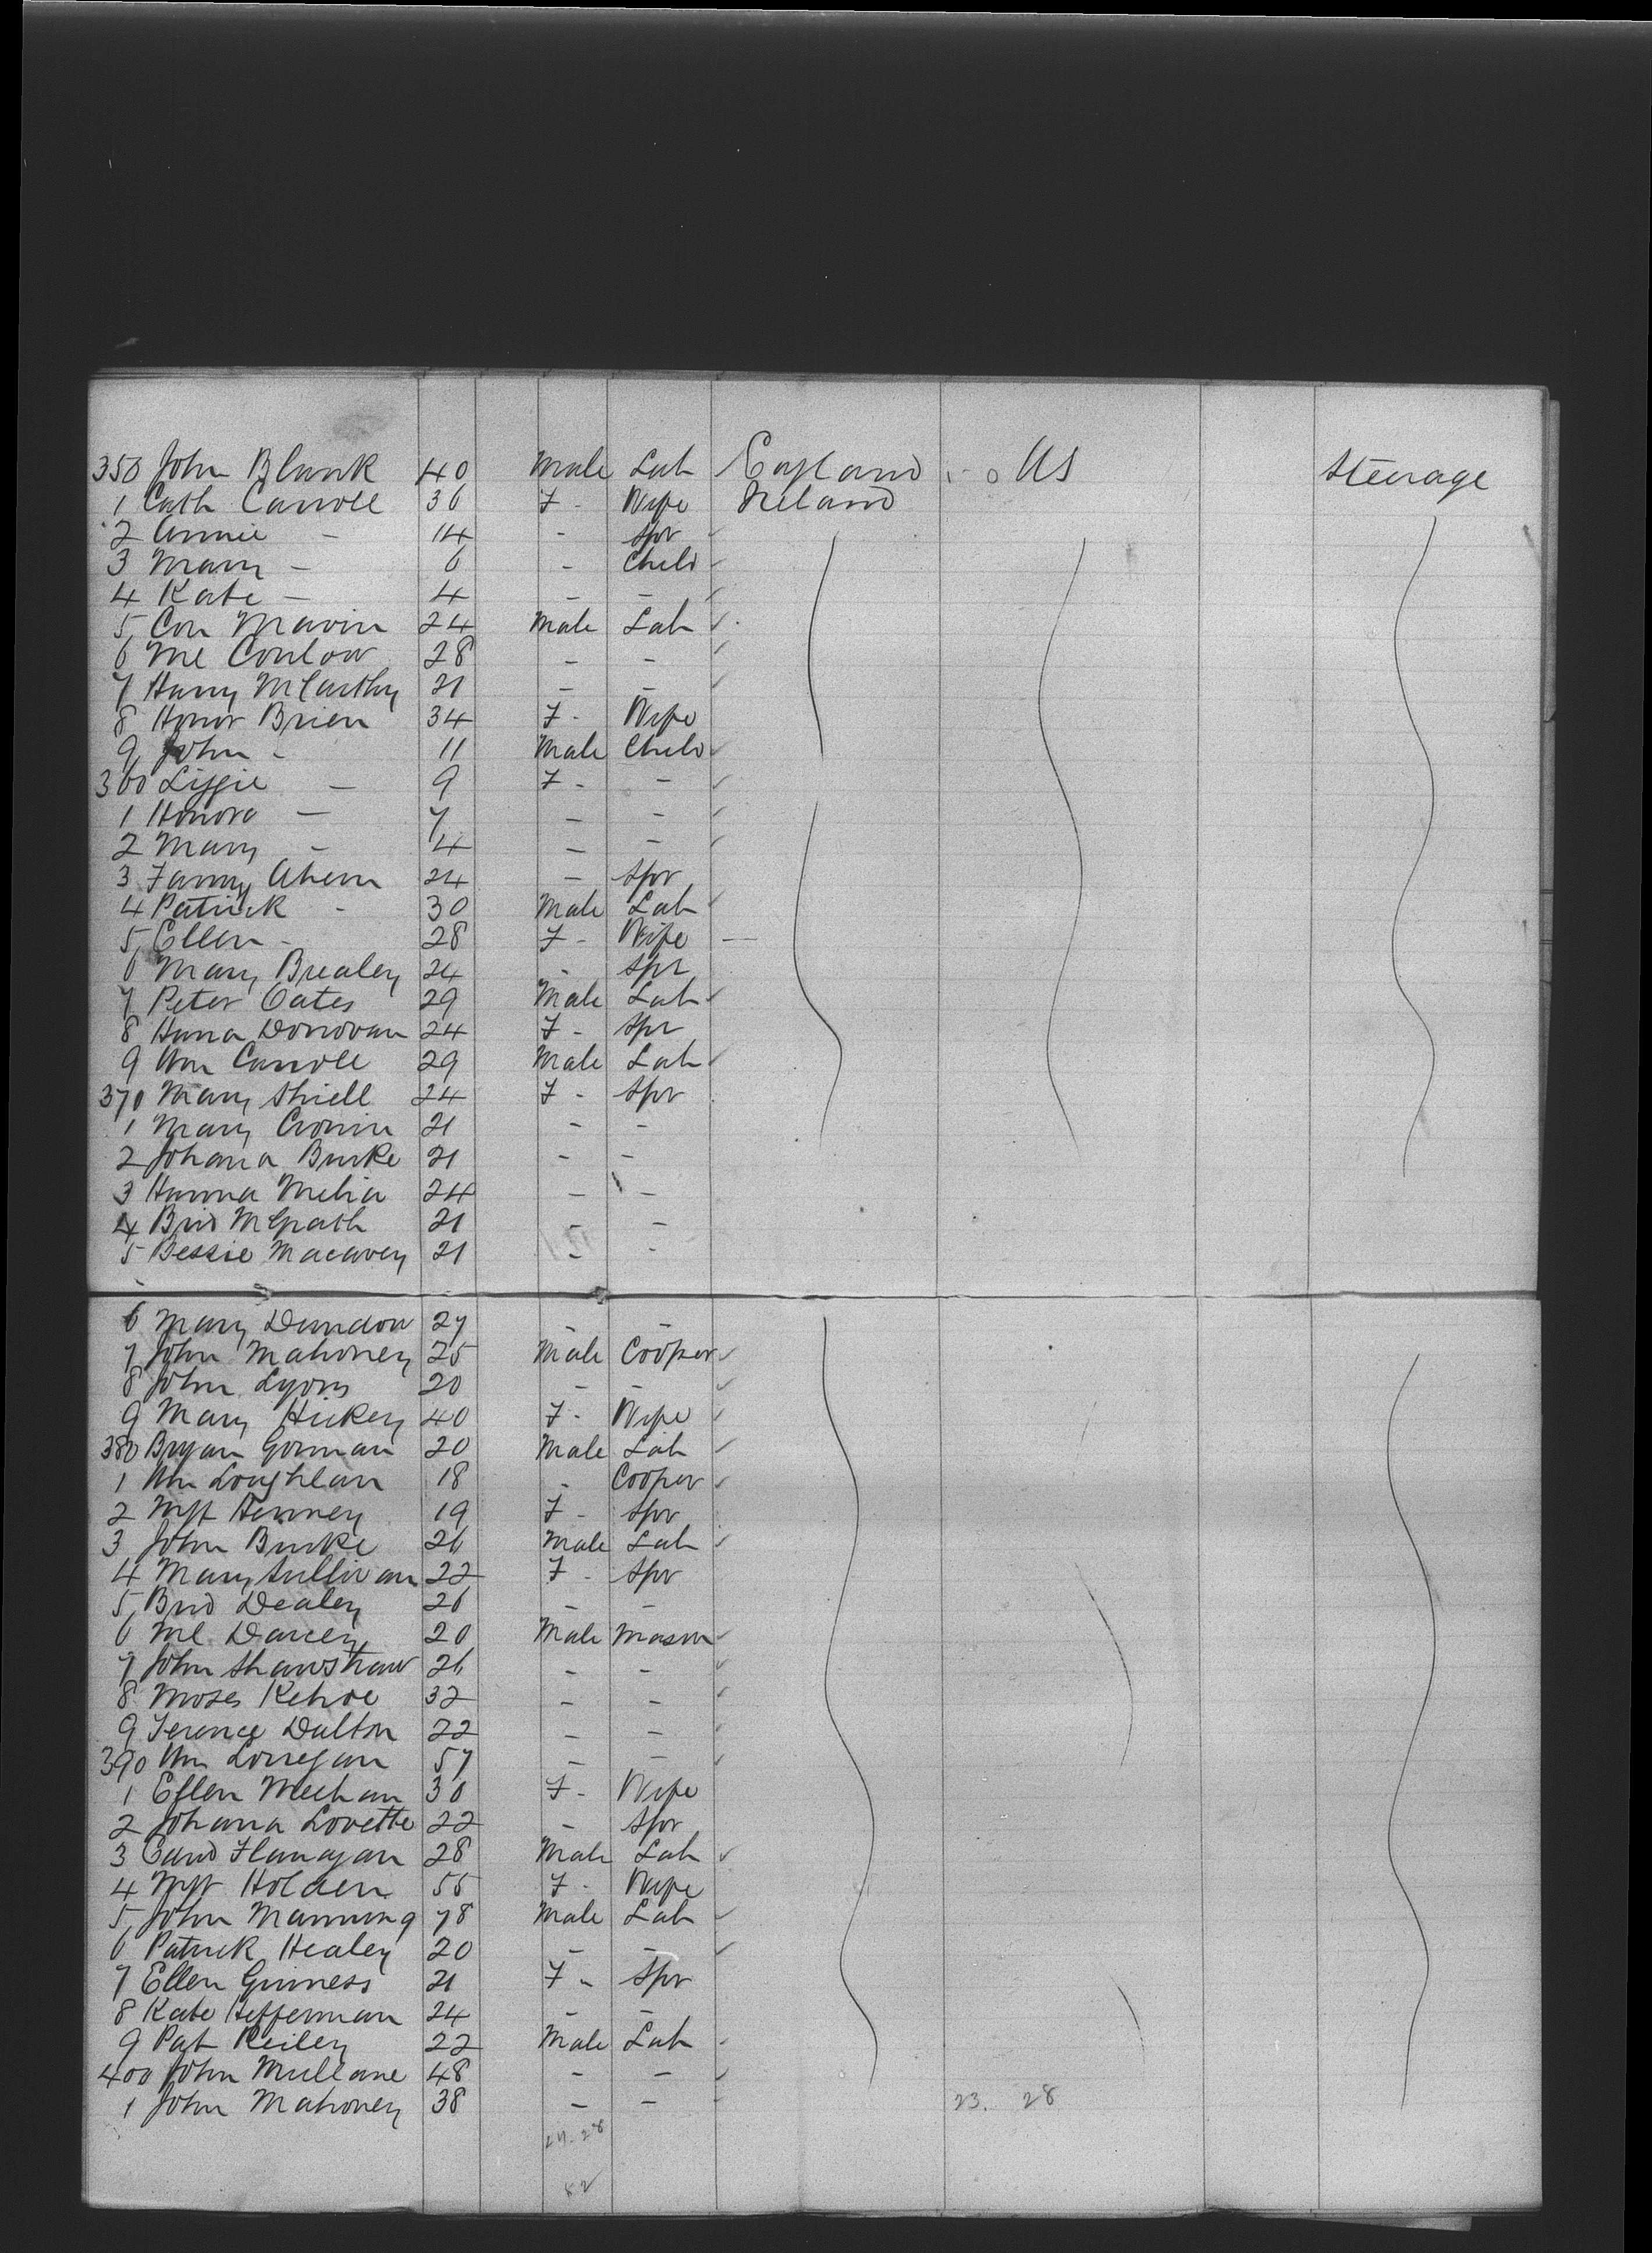 350 John Blank 40 Male Lab England US Steerage
1 Cath Carroll 36 F - Wife Ireland
2 Annie - 14 - Spr
3 Mary - 6 - Child
4 Kate - 4 - -
5 Con Mavin 24 Male Lab
6 Ml Conlow 28 - -
7 Harry McCarthy 21 - -
8 Honor Brien 34 F - Wife
9 John - 11 Male Child
360 Lizzie - 9 F - -
1 Honora - 7 - -
2 Mary - 4 - -
3 Fanny Ahern 24 - Spr
4 Patrick - 30 Male Lab
5 Ellen - 28 F - Wife
6 Mary Brealey 24 - Spr
7 Peter Oates 29 Male Lab
8 Hana Donovan 24 F - Spr
9 Wm Carroll 29 Male Lab
370 Mary Shiell 24 F - Spr
1 Mary Cronin 21 - -
2 Johana Burke 21 - -
3 Hanna Melia 24 - -
4 Brid McGrath 21 - -
5 Bessie Macavey 21 - -
6 Mary Dundon 27 - -
7 John Mahoney 25 Male Cooper
8 John Lyons 20 - -
9 Mary Hickey 40 F - Wife
380 Bryan Gorman 20 Male Lab
1 Wm Loughlan 18 - Cooper
2 Mgt Henney 19 F - Spr
3 John Burke 26 Male Lab
4 Mary Sullivan 22 F - Spr
5 Brid Dealey 26 - -
6 Ml Darcey 20 Male Mason
7 John Shawshaw 26 - -
8 Moses Kehoe 32 - -
9 Terence Dalton 22 - -
390 Wm Lonegan 57 - -
1 Ellen Meehan 30 F - Wife
2 Johana Lovette 22 - Spr
3 Edwd Flanagan 28 Male Lab
4 Mgt Holden 55 F - Wife
5 John Manning 78 Male Lab
6 Patrick Healey 20 - -
7 Ellen Guiness 21 F - Spr
8 Kate Hefferman 24 - -
9 Pat Reiley 22 Male Lab
400 John Mullane 48 - -
1 John Mahoney 38 - - 23. 28
24. 28